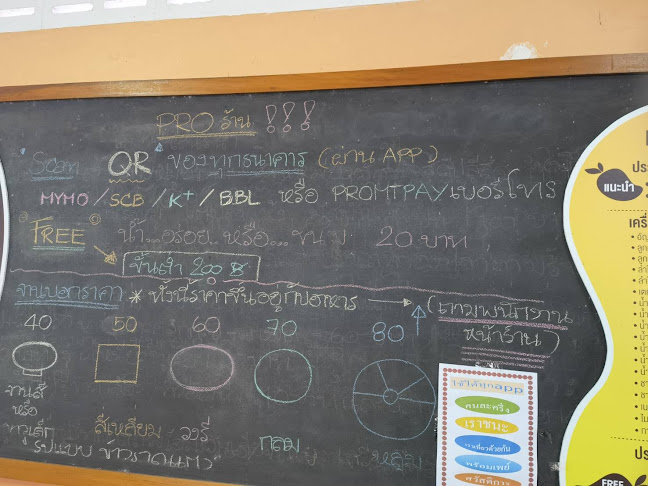 PRO ร้าน !!!
"Scan" QR ของทุกธนาคาร (ผ่าน APP)
MYMO / SCB / K+ / BBL หรือ PROMTPAY เบอร์โทร
FREE น้ำ...อร่อย..หรือ...ขนม 20 บาท
ขั้นต่ำ 200 ฿
จานบอกราคา * ทั้งนี้ราคาขึ้นอยู่กับอาหาร
(ถามพนักงาน
หน้าร้าน)
40 50 60 70 80
จานสี
หรือ
สี่เหลี่ยม วงรี กลม หลุม
รูปแบบ ข้าวราดแกง
ใช้ได้ทุกapp
คนละครึ่ง
เราชนะ
เราเที่ยวด้วยกัน
พร้อมเพย์
สวัสดิการ
แนะนำ
FREE